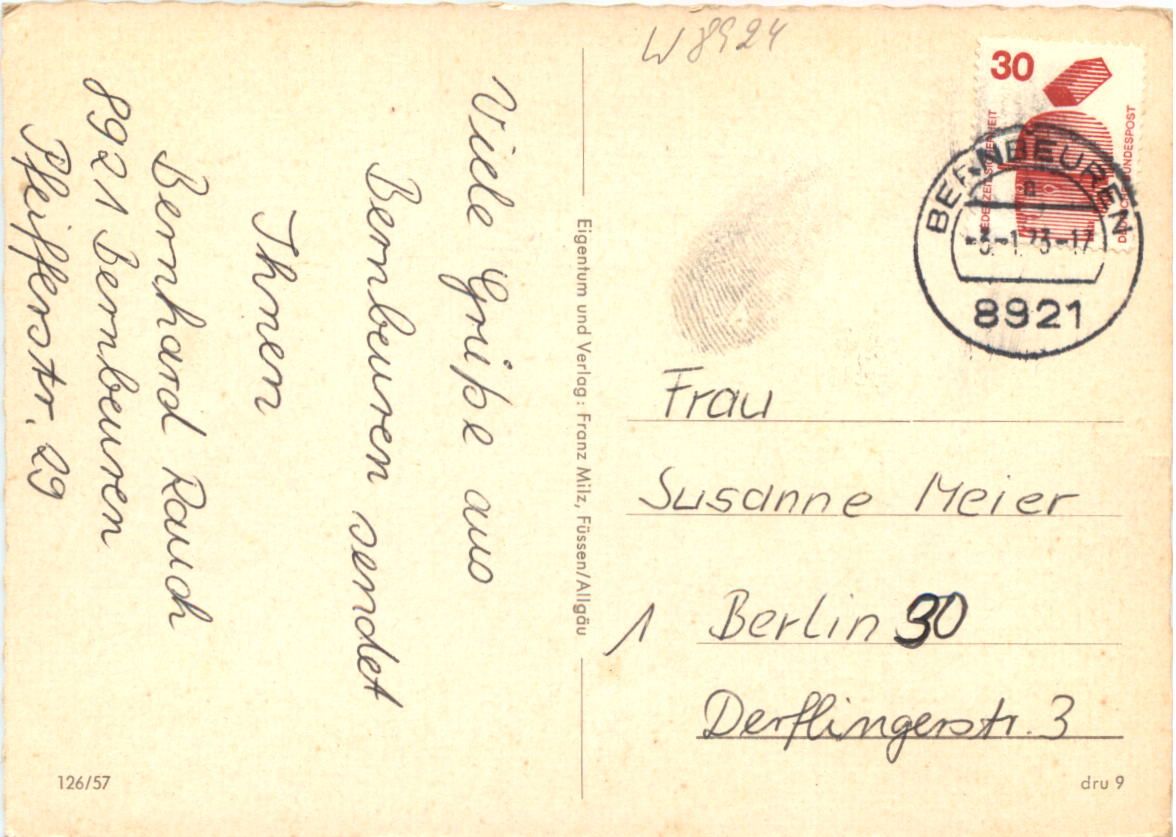 Viele Grüße aus
Bernbeuren sendet
Ihnen
Bernhard Rauch
8921 Bernbeuren
Pfeifferstr. 29
Eigentum und Verlag: Franz Milz, Füssen/Allgäu
126/57
W 8924
30
JEDERZEIT SICHERHEIT
DEUTSCHE BUNDESPOST
BERNBEUREN
a
-3.-1.73-17
8921
Frau
Susanne Meier
1 Berlin 30
Derflingerstr. 3
dru 9